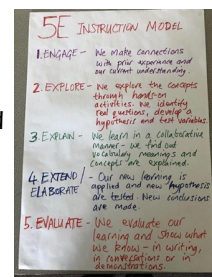 5E INSTRUCTION MODEL
1. ENGAGE - We make connections
with prior experience and
our current understanding.
2. EXPLORE - We explore the concepts
through hands-on
activities. We identify
real questions, develop a
hypothesis and test variables.
3. EXPLAIN - We learn in a collaborative
manner - we find out
vocabulary meanings and
concepts are explained.
4. EXTEND/ - Our new learning is
ELABORATE applied and new hypothesis
are tested. New conclusions
are made.
5. EVALUATE - We evaluate our
learning and show what
we know - in writing,
in conversations or in
demonstrations.